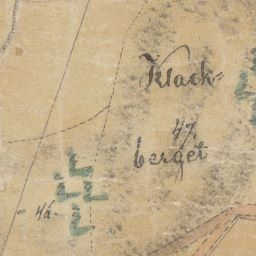 Klack=
47.
berget
- 4á.